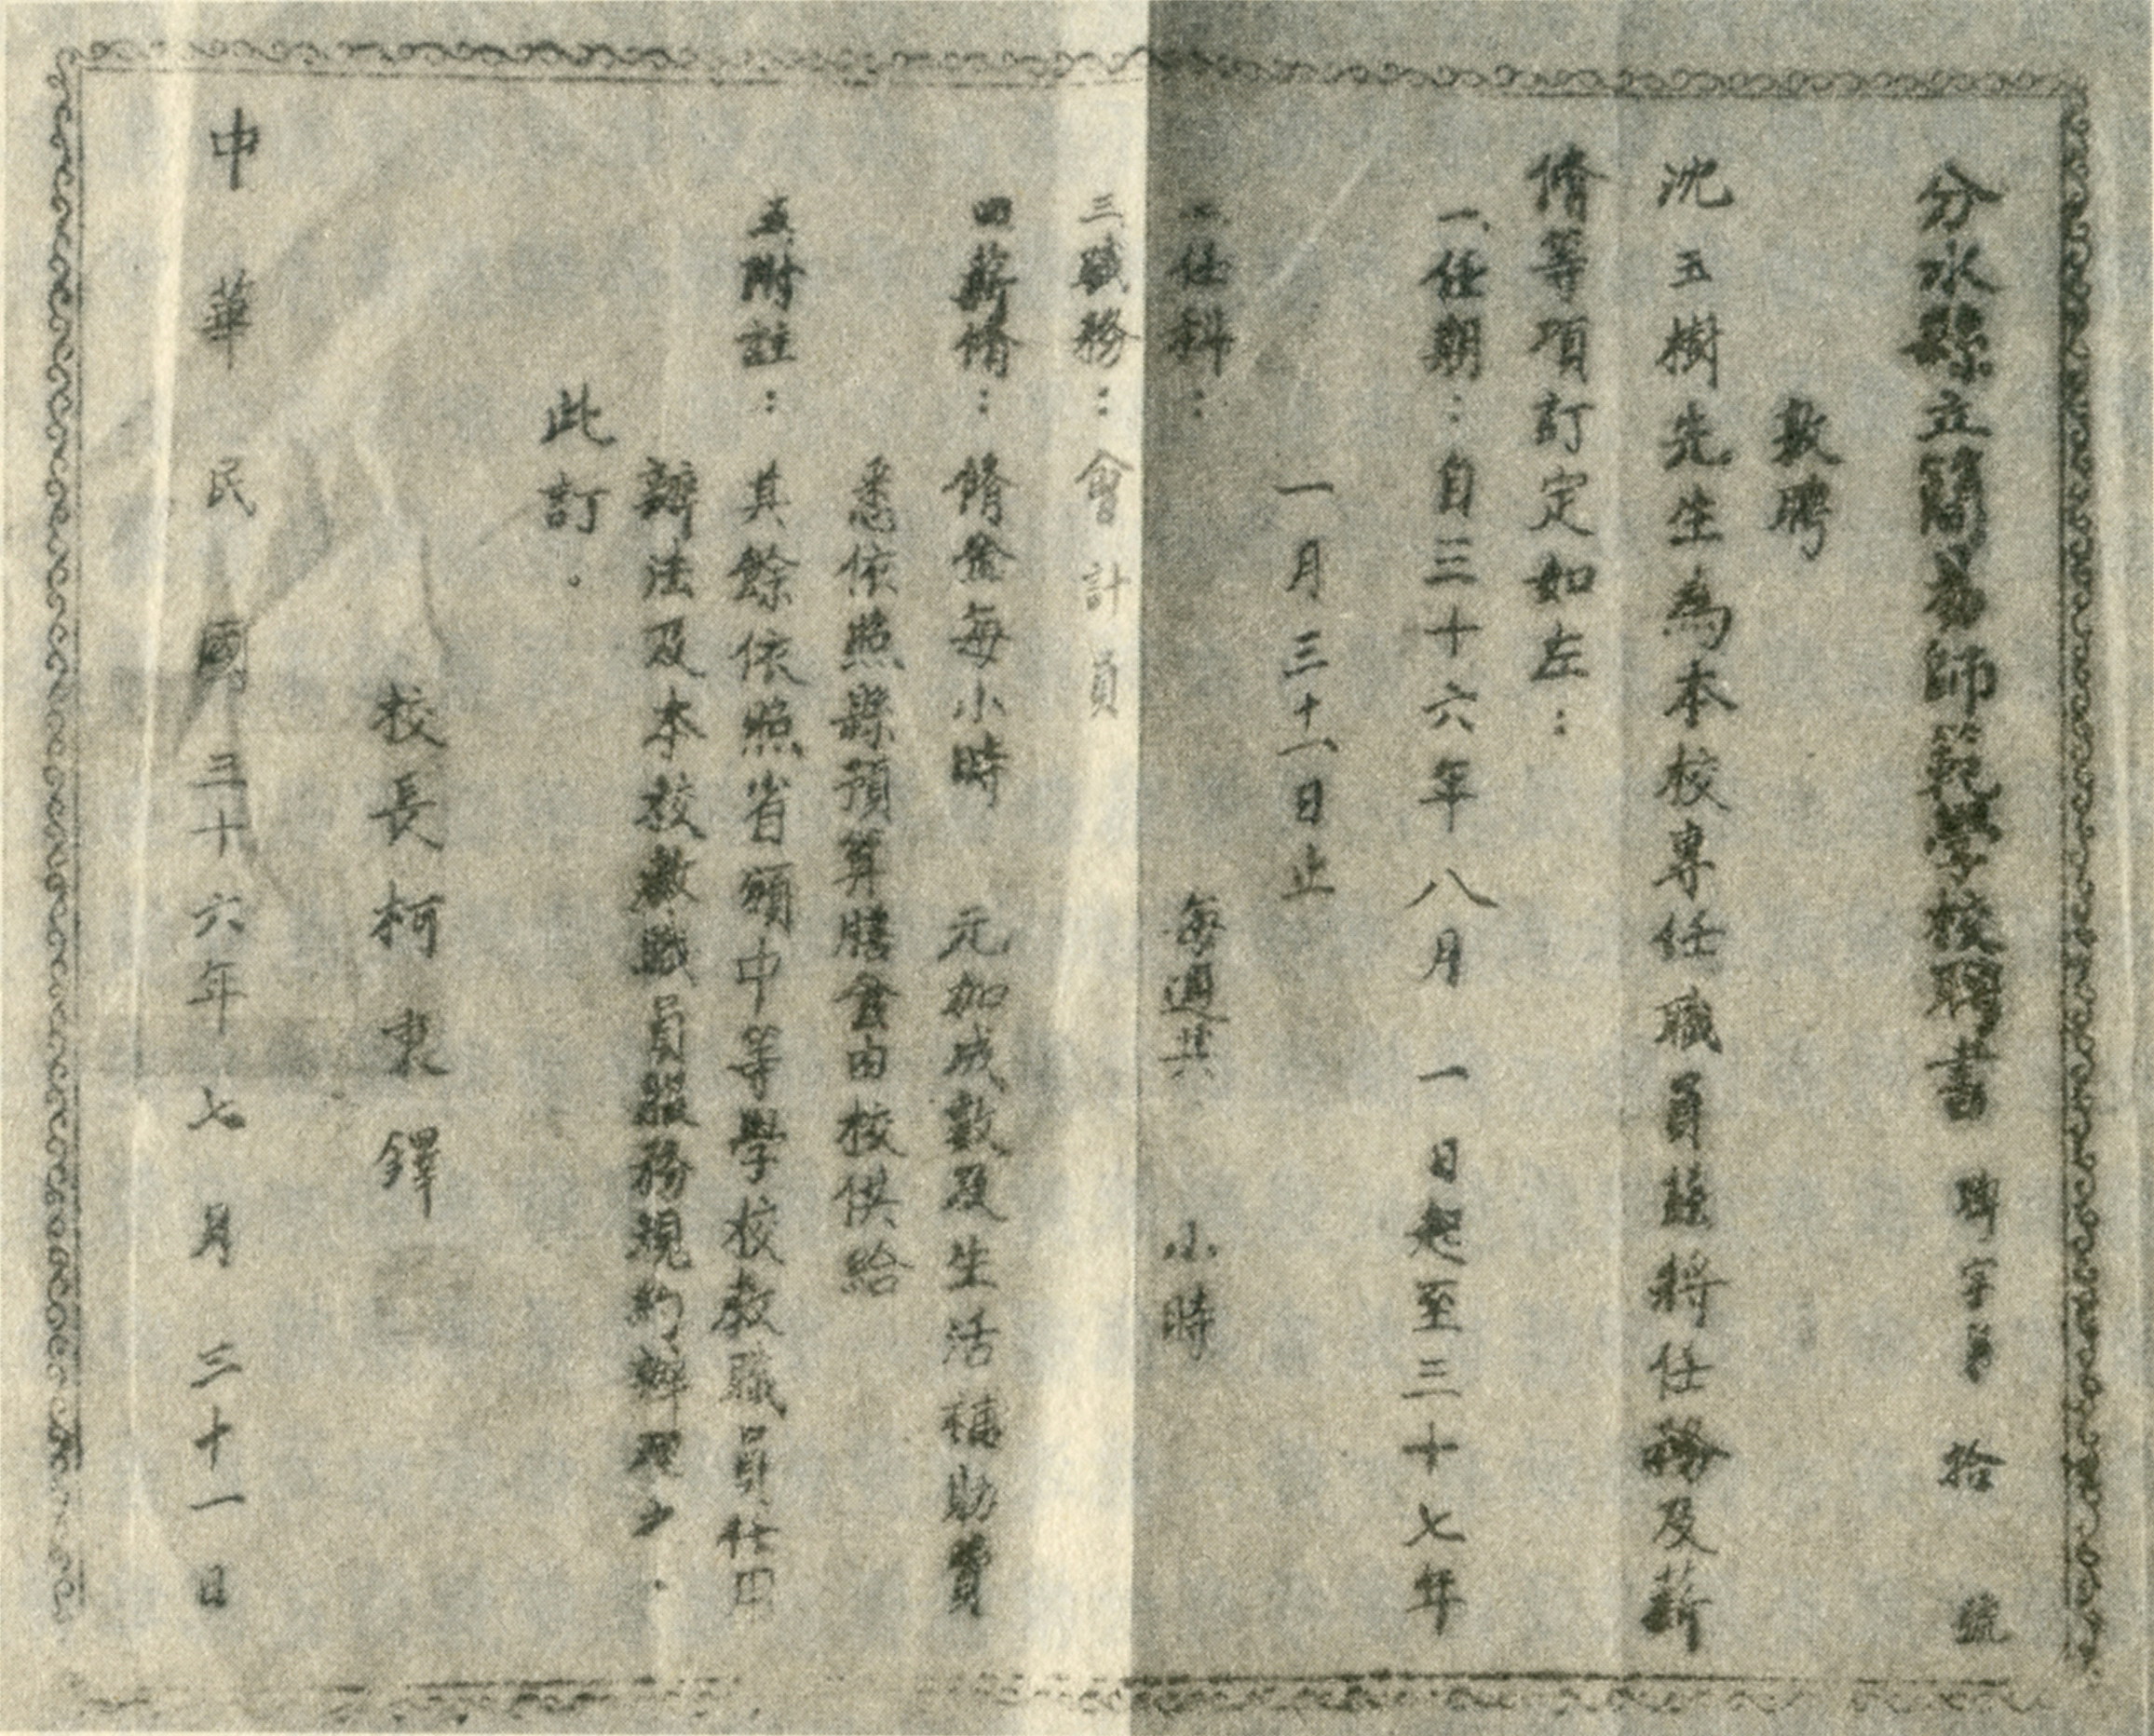 分水縣立簡易師範學校聘書 聘字第 拾 號
敦聘
沈玉樹先生為本校專任職員茲將任務及薪
脩等項訂定如左：
一、任期：自三十六年八月一日起至三十七年
一月三十一日止
二、任科： 每週共 小時
三、職務：會計員
四、薪脩：脩金每小時 元加成數及生活補助費
悉依照縣預算膳食由校供給
五、附註：其餘依照省頒中等學校教職員任用
辦法及本校教職員服務規約辦理之.
此訂.
校長柯 鐸
中華民國三十六年七月三十一日